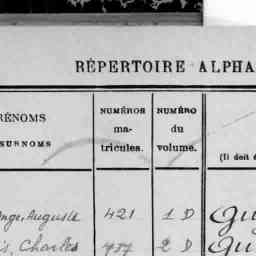 RÉPERTOIRE ALPHA
RÉNOMS
SURNOMS
NUMÉROS
ma-
tricules.
NUMÉRO
du
volume.
(Il doit é
Ange, Auguste 421 1 D
Charles 2 D